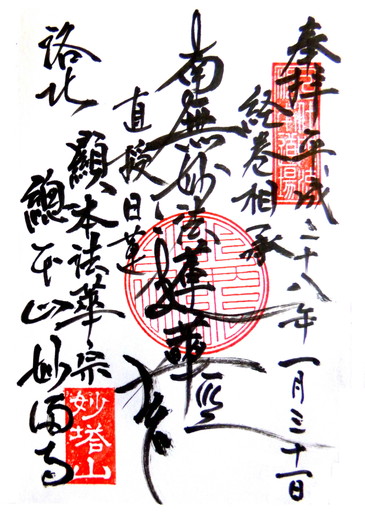 奉拝 平成二十八年一月三十一日
経巻相承
南無妙法蓮華経
直授日蓮
洛北
顕本法華宗
總本山妙満寺
妙塔山